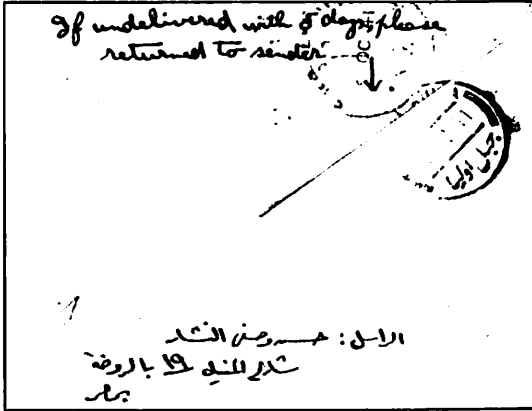 If undelivered with 5 days please
returned to sender
جبل اوليا
الراسل : حسن وصفى النشار
شارع المنيل 19 بالروضة
بمصر